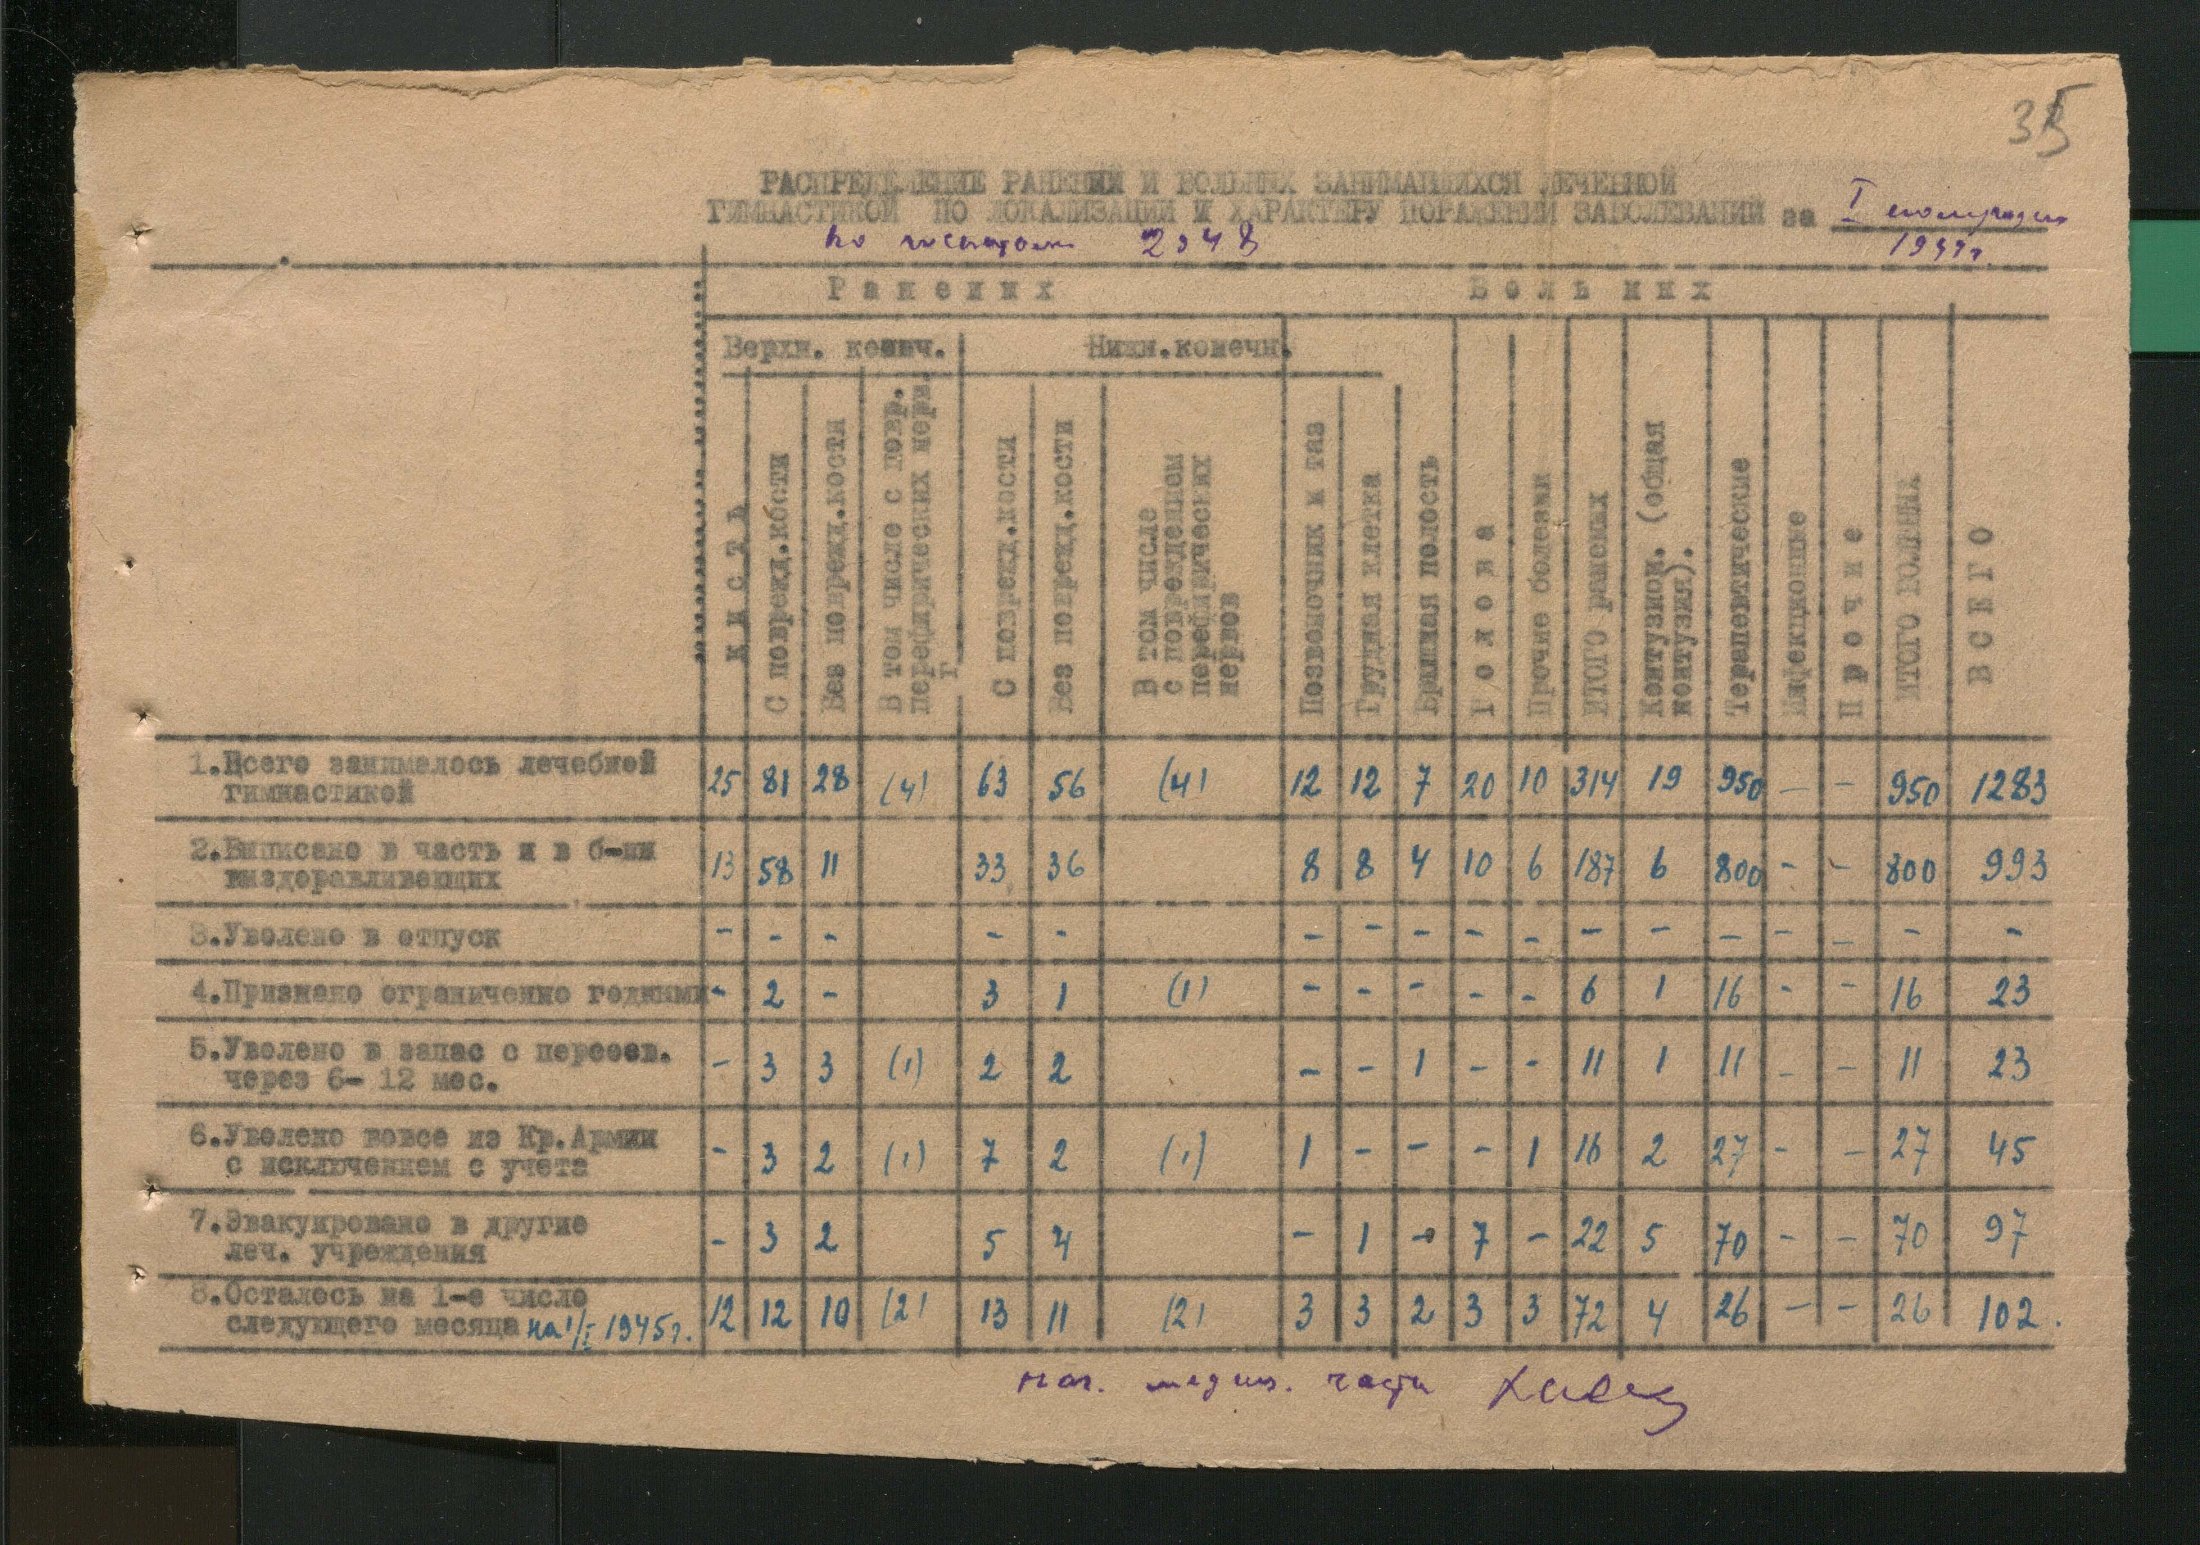 35
РАСПРЕДЕЛЕНИЕ РАНЕНИЙ И БОЛЬНЫХ ЗАНИМАВШИХСЯ ЛЕЧЕБНОЙ
ГИМНАСТИКОЙ ПО ЛОКАЛИЗАЦИИ И ХАРАКТЕРУ ПОРАЖЕНИЙ ЗАБОЛЕВАНИЙ за I полугодие
по госпиталю 2948 1944г.
Раненых Больных
Верхн. конеч. Нижн.конечн.
КИСТЬ
С поврежд.кости
Без поврежд.кости
В том числе с повр.
перефирических нерв.
С поврежд.кости
Без поврежд.кости
В том числе
с повреждением
перефирических
нервов
Позвоночник и таз
Грудная клетка
Брюшная полость
Голова
Прочие болезни
ИТОГО раненых
Контузион. (общая
контузия).
Терапевтические
Инфекционные
Прочие
ИТОГО БОЛЬНЫХ
ВСЕГО
1.Всего занималось лечебной
гимнастикой 25 81 28 (4) 63 56 (4) 12 12 7 20 10 314 19 950 - - 950 1283
2.Выписано в часть и в б-ни
выздоравливающих 13 58 11 33 36 8 8 4 10 6 187 6 800 - - 800 993
3.Уволено в отпуск - - - - - - - - - - - - - - - - -
4.Признано ограниченно годными - 2 - 3 1 (1) - - - - - 6 1 16 - - 16 23
5.Уволено в запас с переосв.
через 6- 12 мес. - 3 3 (1) 2 2 - - 1 - - 11 1 11 - - 11 23
6.Уволено вовсе из Кр.Армии
с исключением с учета - 3 2 (1) 7 2 (1) 1 - - - 1 16 2 27 - - 27 45
7.Эвакуировано в другие
леч. учреждения - 3 2 5 4 - 1 - 7 - 22 5 70 - - 70 97
8.Осталось на 1-е число
следующего месяца на 1/I 1945г. 12 12 10 (2) 13 11 (2) 3 3 2 3 3 72 4 26 - - 26 102.
нач. медиц. части